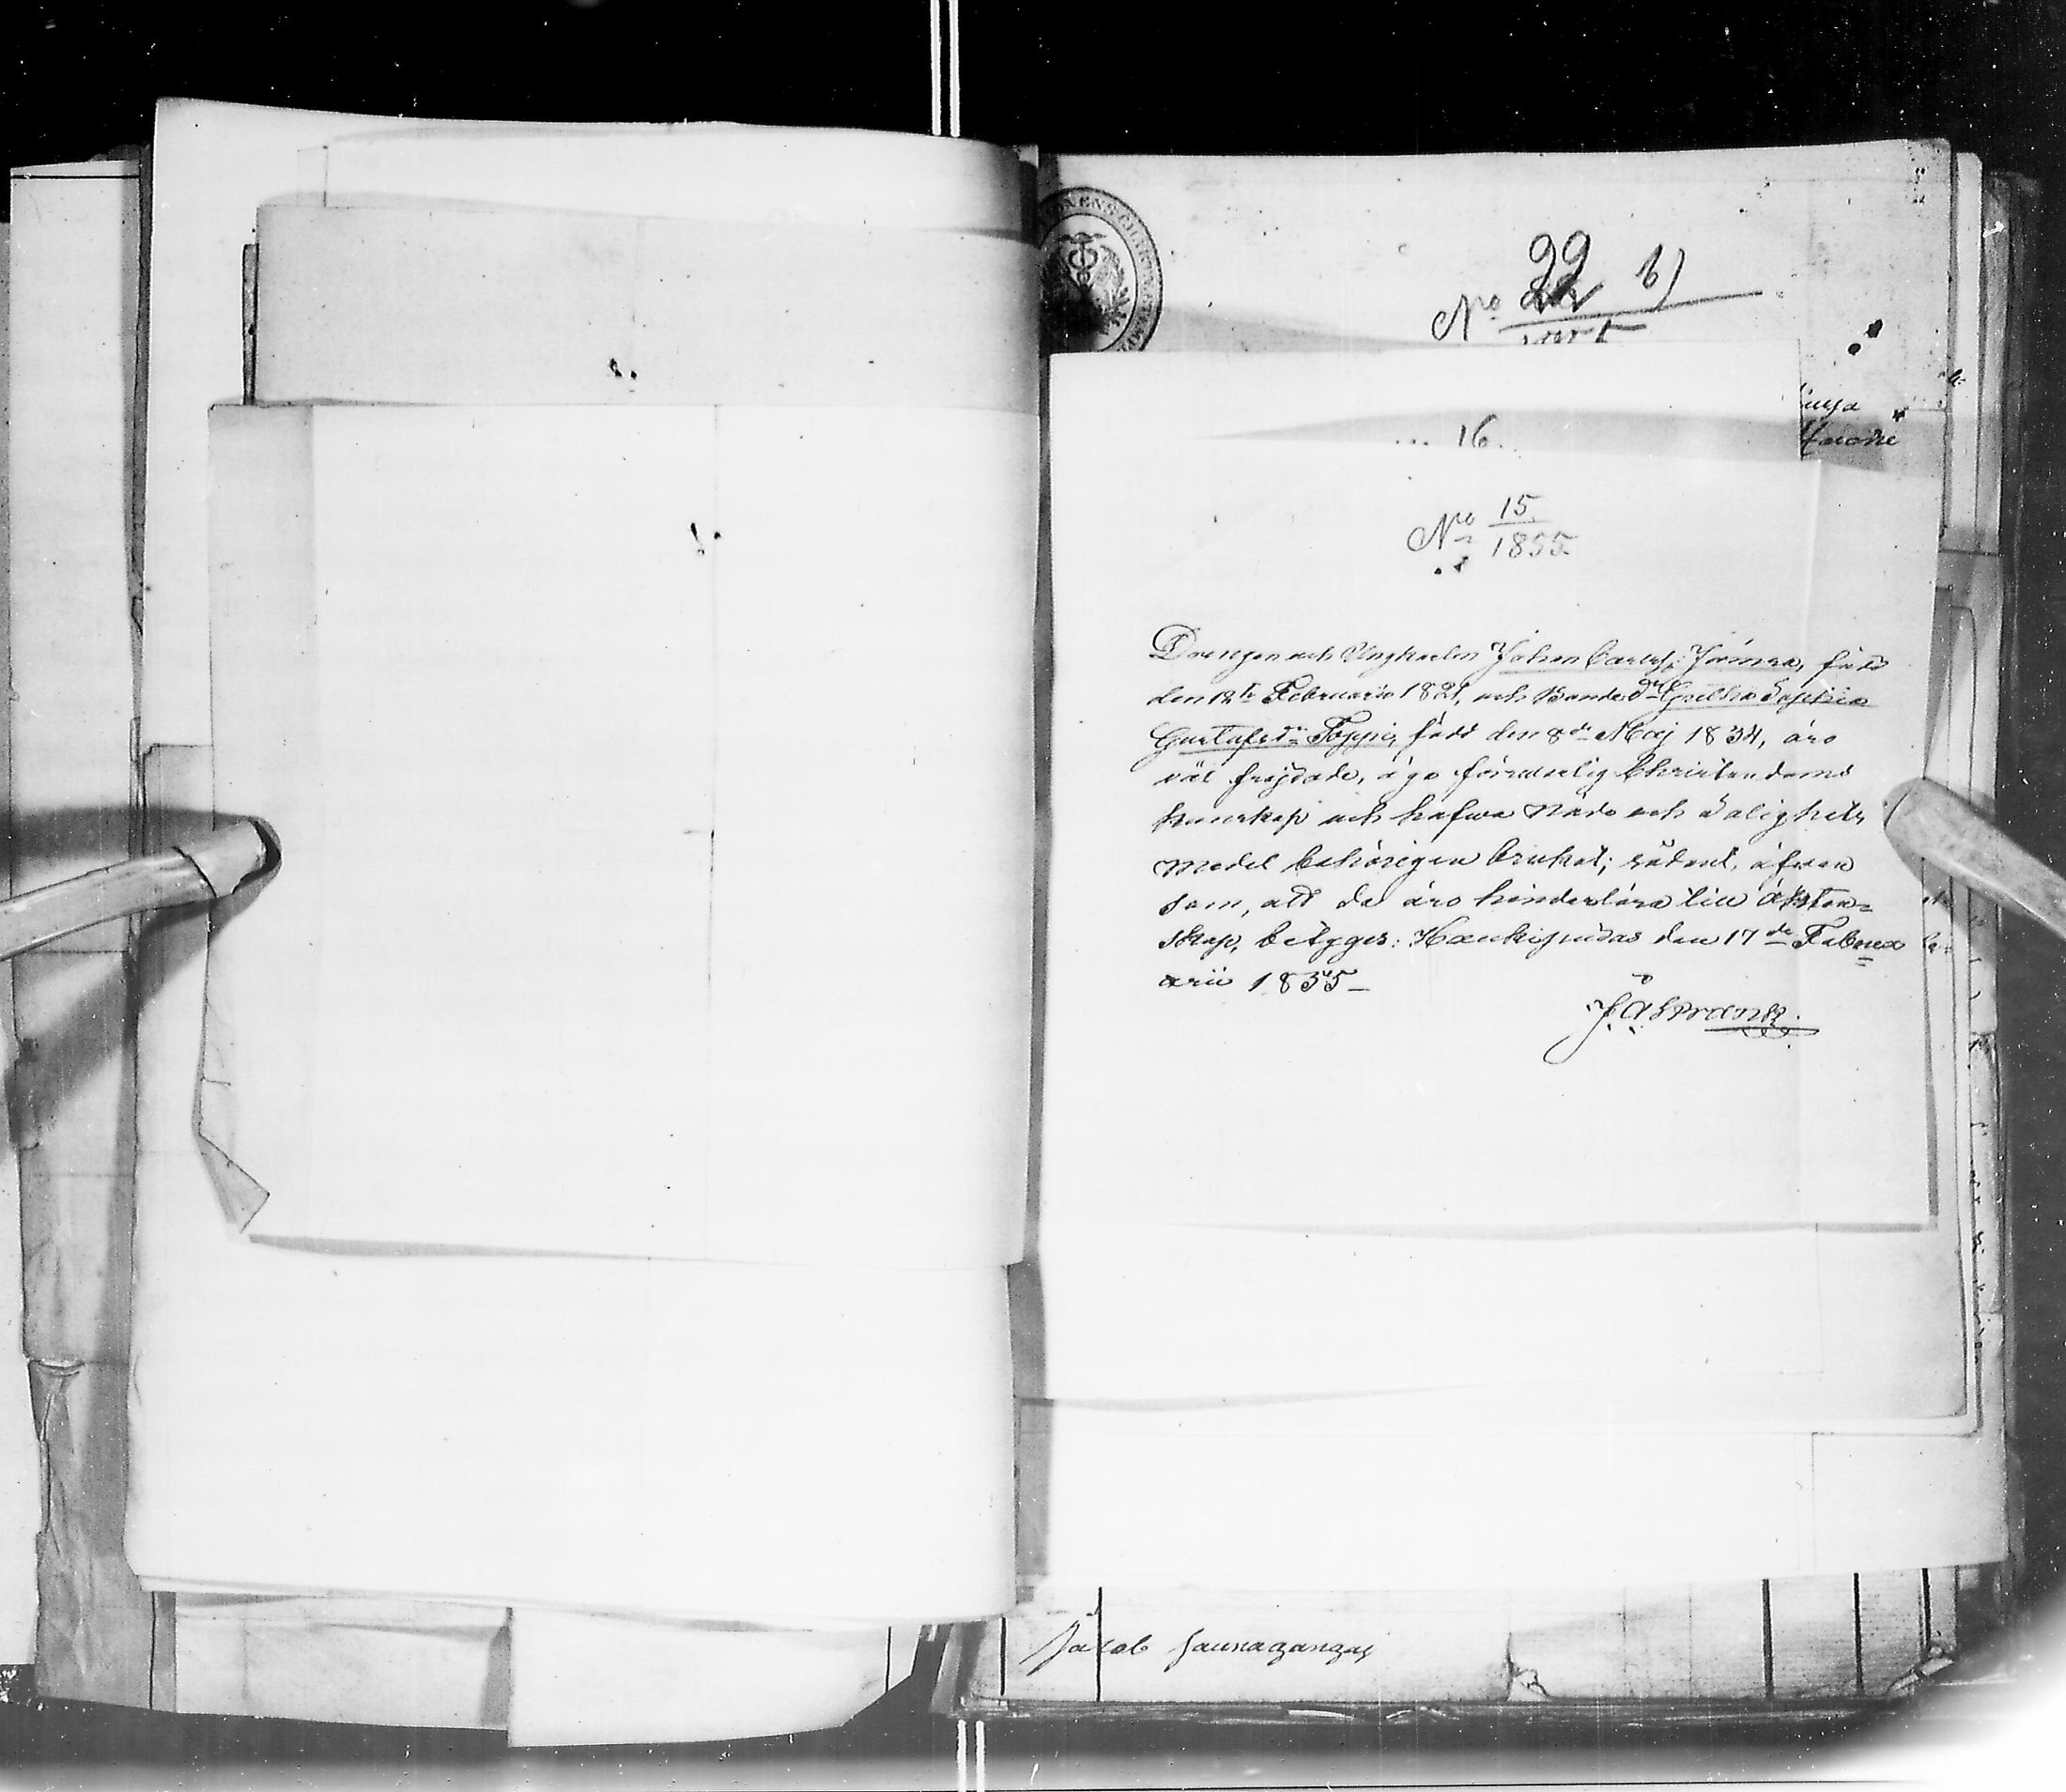 No 22 b)
16.
No 15
1855.
Drengen och Ungkarlen Johan Carlss. , född
den 12te Februarii 1821, och Bonded:r Gretha Sophia
Gustafsd:r Toppi, född den 8de Maj 1834, äro
väl frejdade, äga försvarlig Christendoms
kunskap och hafwa Nåde och Salighets
Medel behörigen brukat; sådant, äfwen
som, att de äro hinderlösa till äkten=
skap, betygar: Haukipudas den 17de Februa
arii 1855_
J A Snranck.
Jacob Saunagangas